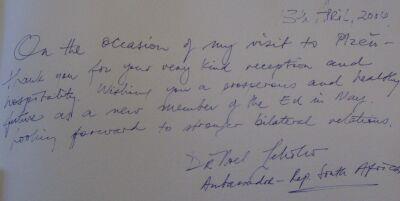 April, 2004
On the occasion of my visit to Plzeň -
thank you for your very kind reception and
hospitality. Wishing you a prosperous and healthy
future as a new member of the EU in May.
Looking forward to stronger bilateral relations.
Dr Noel
Ambassador - Rep. South Africa